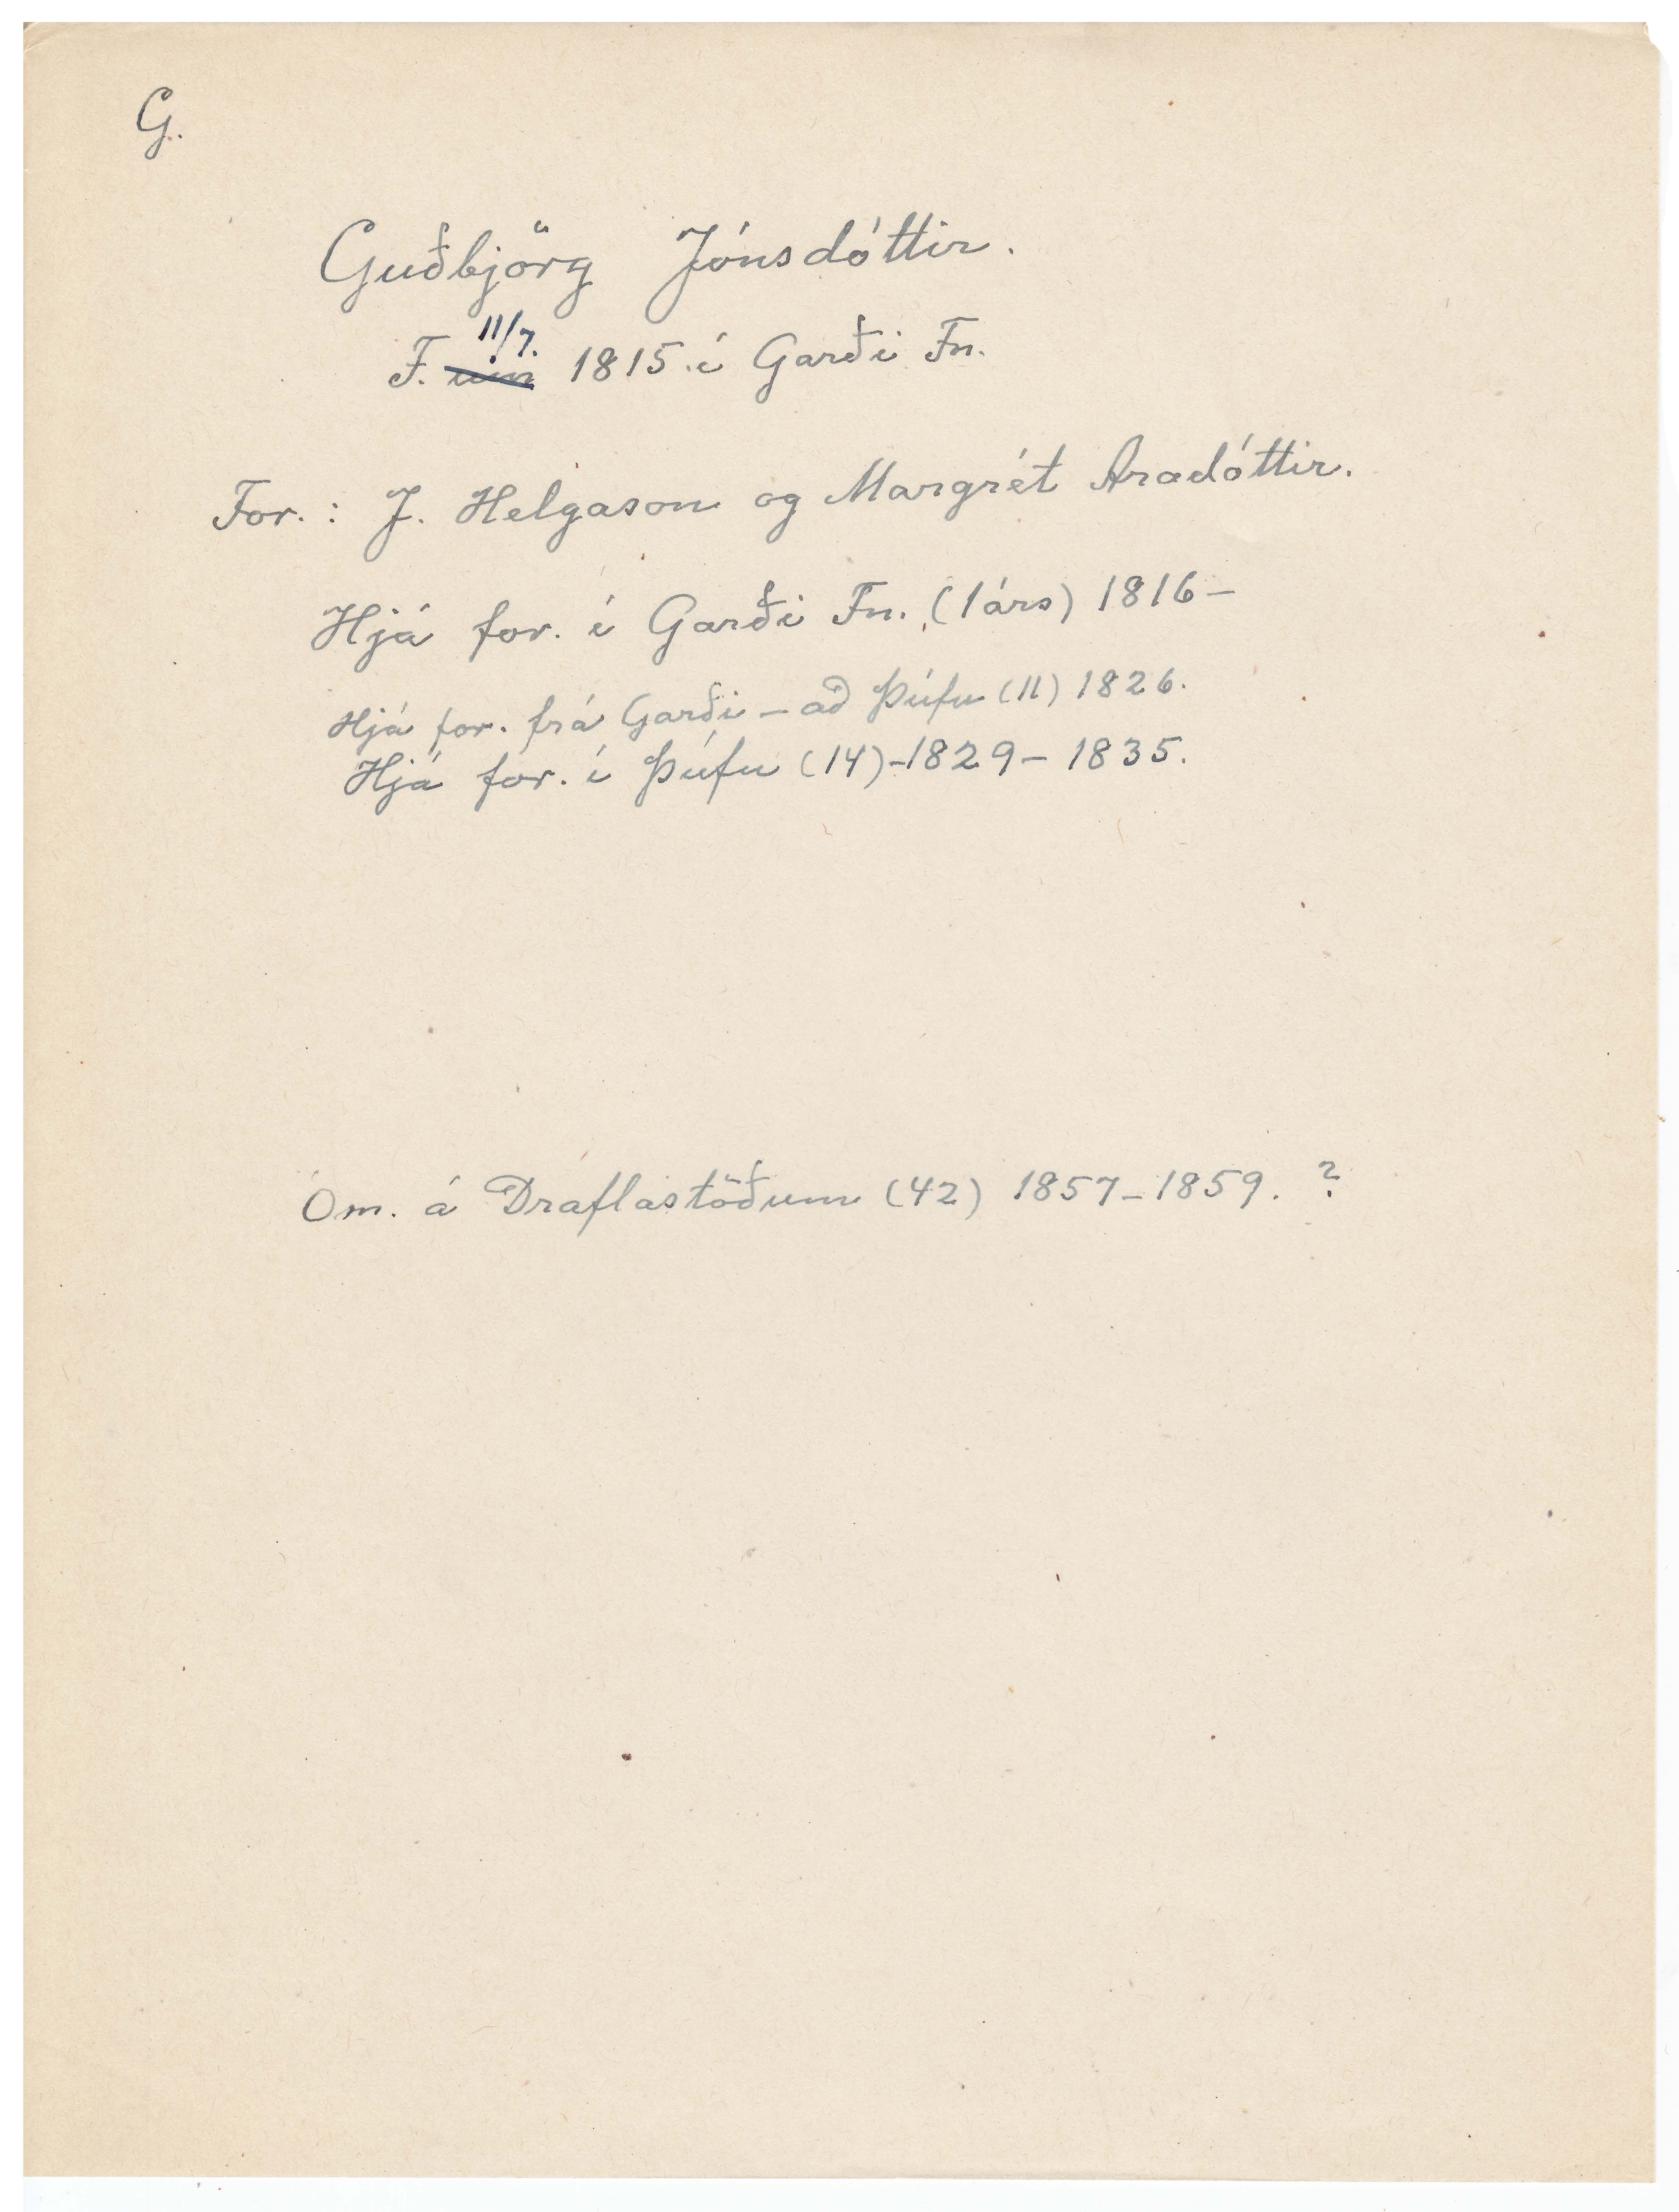 G.
Guðbjörg Jónsdóttir.
11/7.
F. um 1815 í Garði Fn.
For.: J. Helgason og Margrét Aradóttir.
Hjá for. í Garði Fn. (1árs) 1816-
Hjá for. frá Garði - að Þúfu (11) 1826.
Hjá for. í Þúfu (14) - 1829 - 1835.
Óm. á Draflastöðum (42) 1857-1859. ?